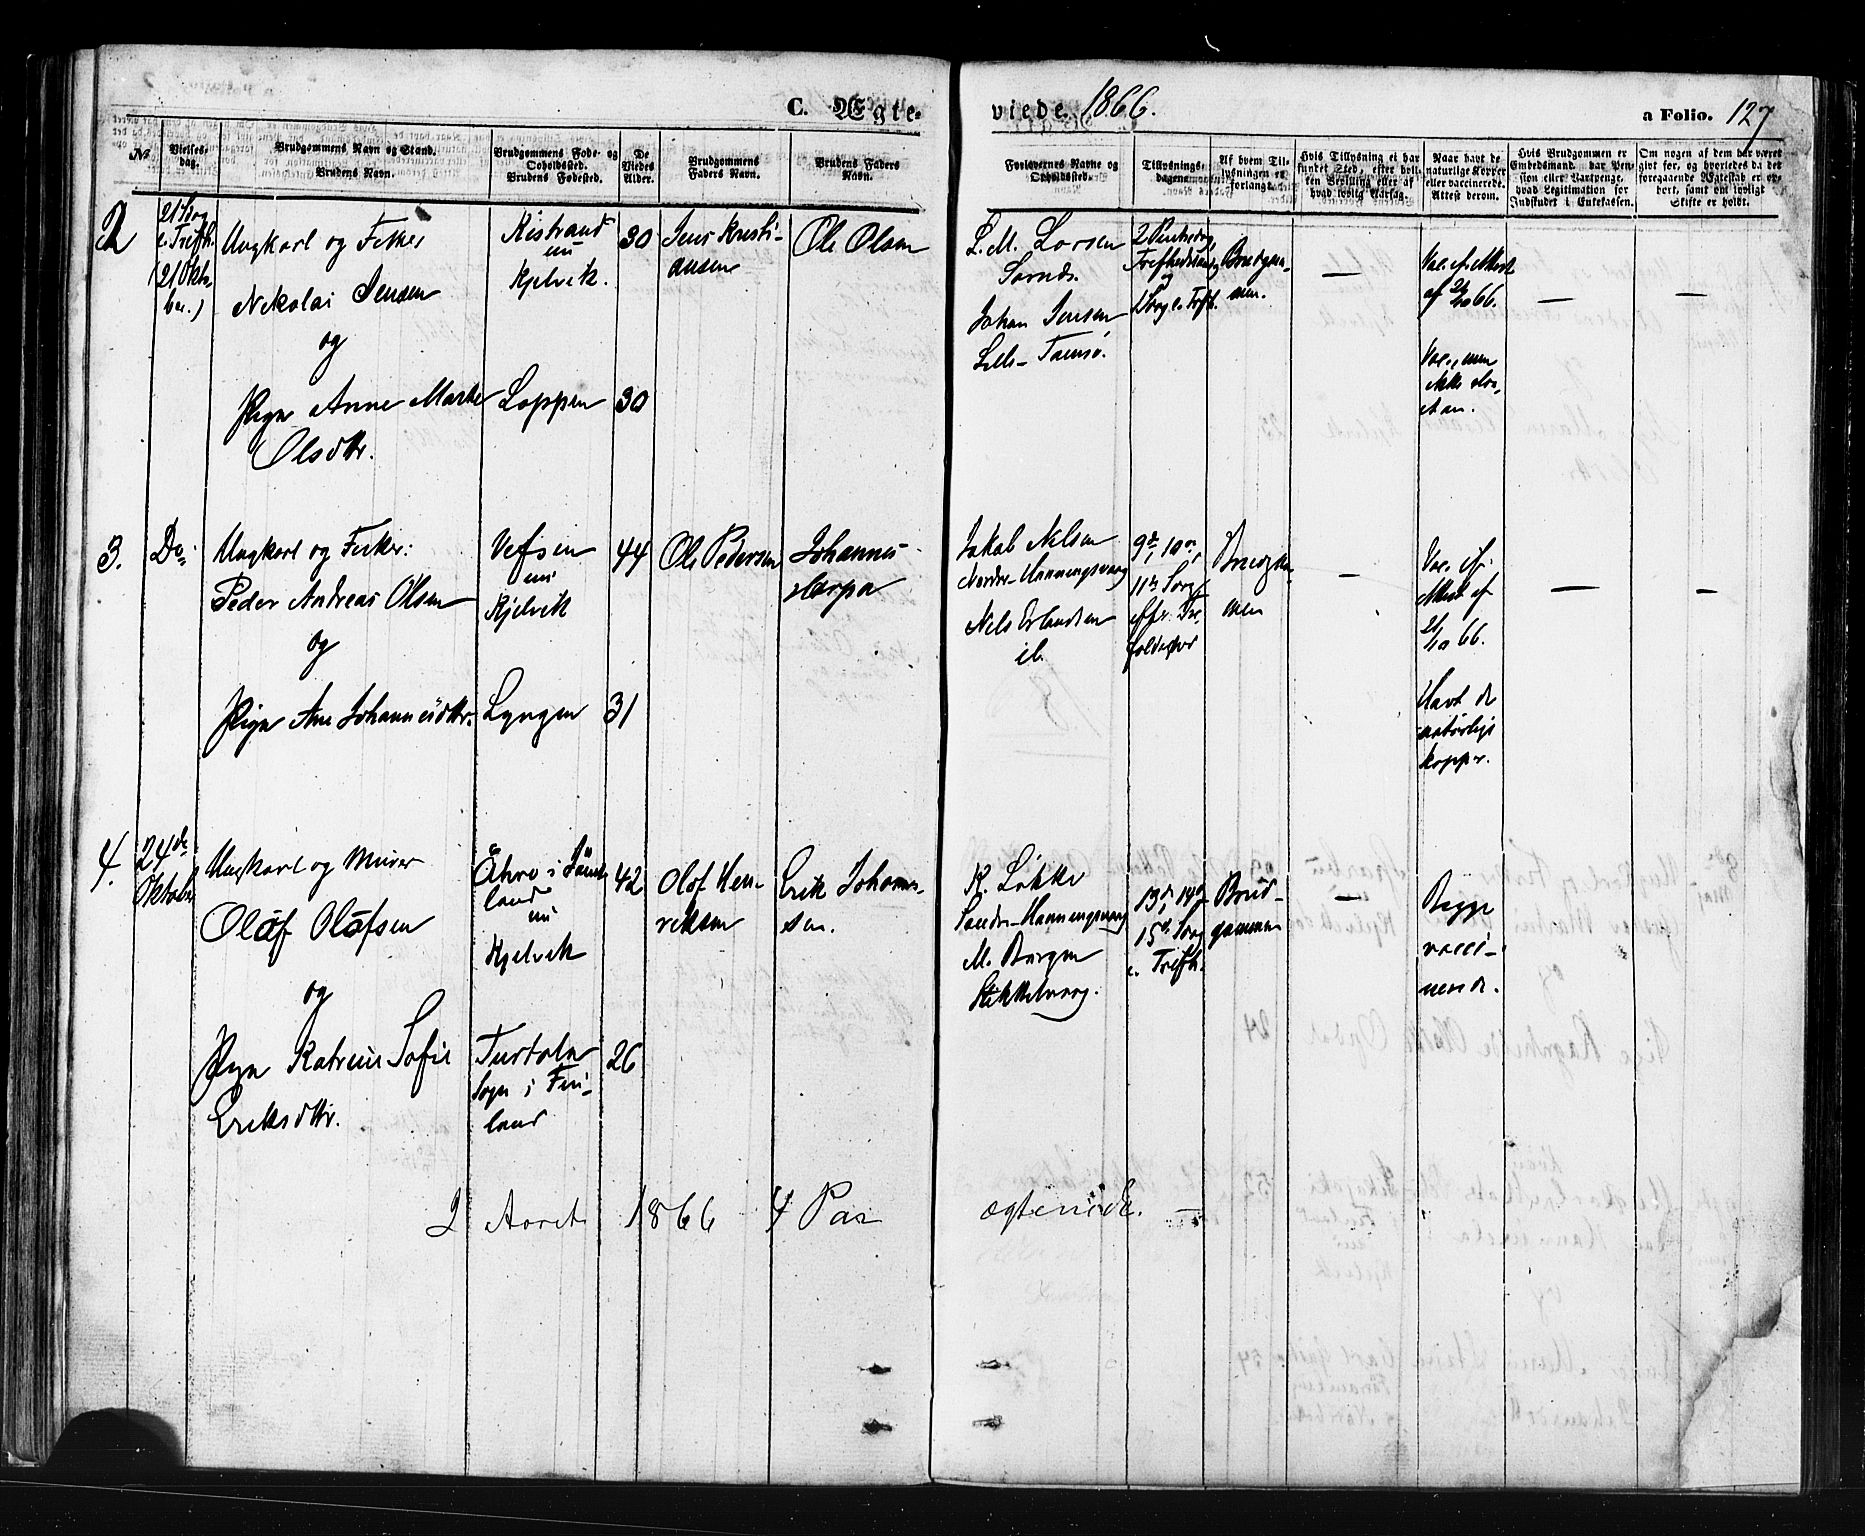 C. Ægte-
viede 1866.
a Folio. 127
No
Vielses-
dag.
Brudgommens Navn og Stand.
Brudens Navn.
Brudgommens Føde- og
Opholdssted.
Brudens Fødested.
De
Viedes
Alder.
Brudgommens
Faders Navn.
Brudens Faders
Navn.
Forlovernes Navne og
Opholdssted.
Tillysnings-
dagene.
Af hvem Til-
lysningen er
forlangt.
Hvis Tillysning ei har
fundet Sted, efter hvil-
ken Bevilling eller af
hvad lovlig Aarsag.
Naar havt de
naturlige Kopper
eller vaccinerede.
Attest derom.
Hvis Brudgommen er
Embedsmand, har Pen-
sion eller Vartpenge,
hvad Legitimation for
Indskudet i Enkekassen.
Om nogen af dem har været
gift før, og hvorledes da det
foregaaende Ægteskab er op-
hørt, samt om lovligt
Skifte er holdt.
2
21 Søg
e. Trefh.
(21 Okto-
ber.)
Ungkarl og Fisker
Nikolai Jensen
og
Pige Anne Marthe
Olsdtr.
Kistrand
nu
Kjelvik.
Loppen
30
30
Jens Kristi-
ansen
Ole Olsen
L. M. Larsen
Sarnæs.
Johan Jensen
Lille-Tamsø.
2 Pintsedag,
Trefhedssøndag
og
1 Søg e. Trfh.
Brudgom-
men.
—
Vac. ef. Attest
af 21/10 66.
Vac., men
ikke
—
—
3.
Do.
Ungkarl og Fisker:
Peder Andreas Olsen
og
Pige Ane Johannesdtr.
Vefsen
nu
Kjelvik
Lyngen
44
31
Ole Pedersen
Johannes
Harpa
Jakob Nilsen
Nordre-Honningsvaag
Nels Erlandsen
ib.
9de, 10de,
11te Søg
efter Tre
foldighed
Brudgom-
men
—
Vac. ef.
Attest af
21/10 66.
Havt de
naturlige
kopper.
—
—
4.
24de
Oktober
Ungkarl og Murer
Olof Olofsen
og
Pige Katrine Sofie
Eriksdtr.
Åhre i Jämt-
land
nu
Kjelvik
Turtola
Sogn i Fin-
land
42
26
Olof Hen-
riksen
Erik Johann-
sen.
R. Løkke
Søndre-Honningsvaag
M. Bergen
Skikkelvaag.
13de, 14de
15de Søg
e. Trefh.
Brud-
gommen
—
Begge
vacci-
nerede.
I Aaret 1866 4 Par ægteviede. —